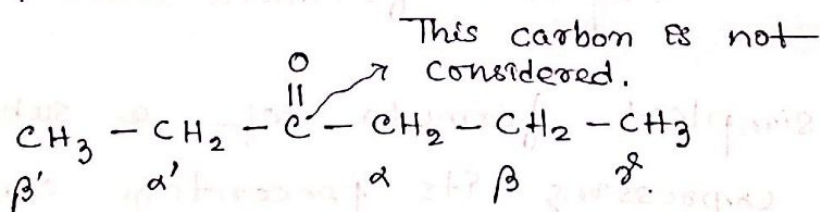 This carbon is not
considered.
O
||
CH₃ - CH₂ - C - CH₂ - CH₂ - CH₃
β' α' α β γ.